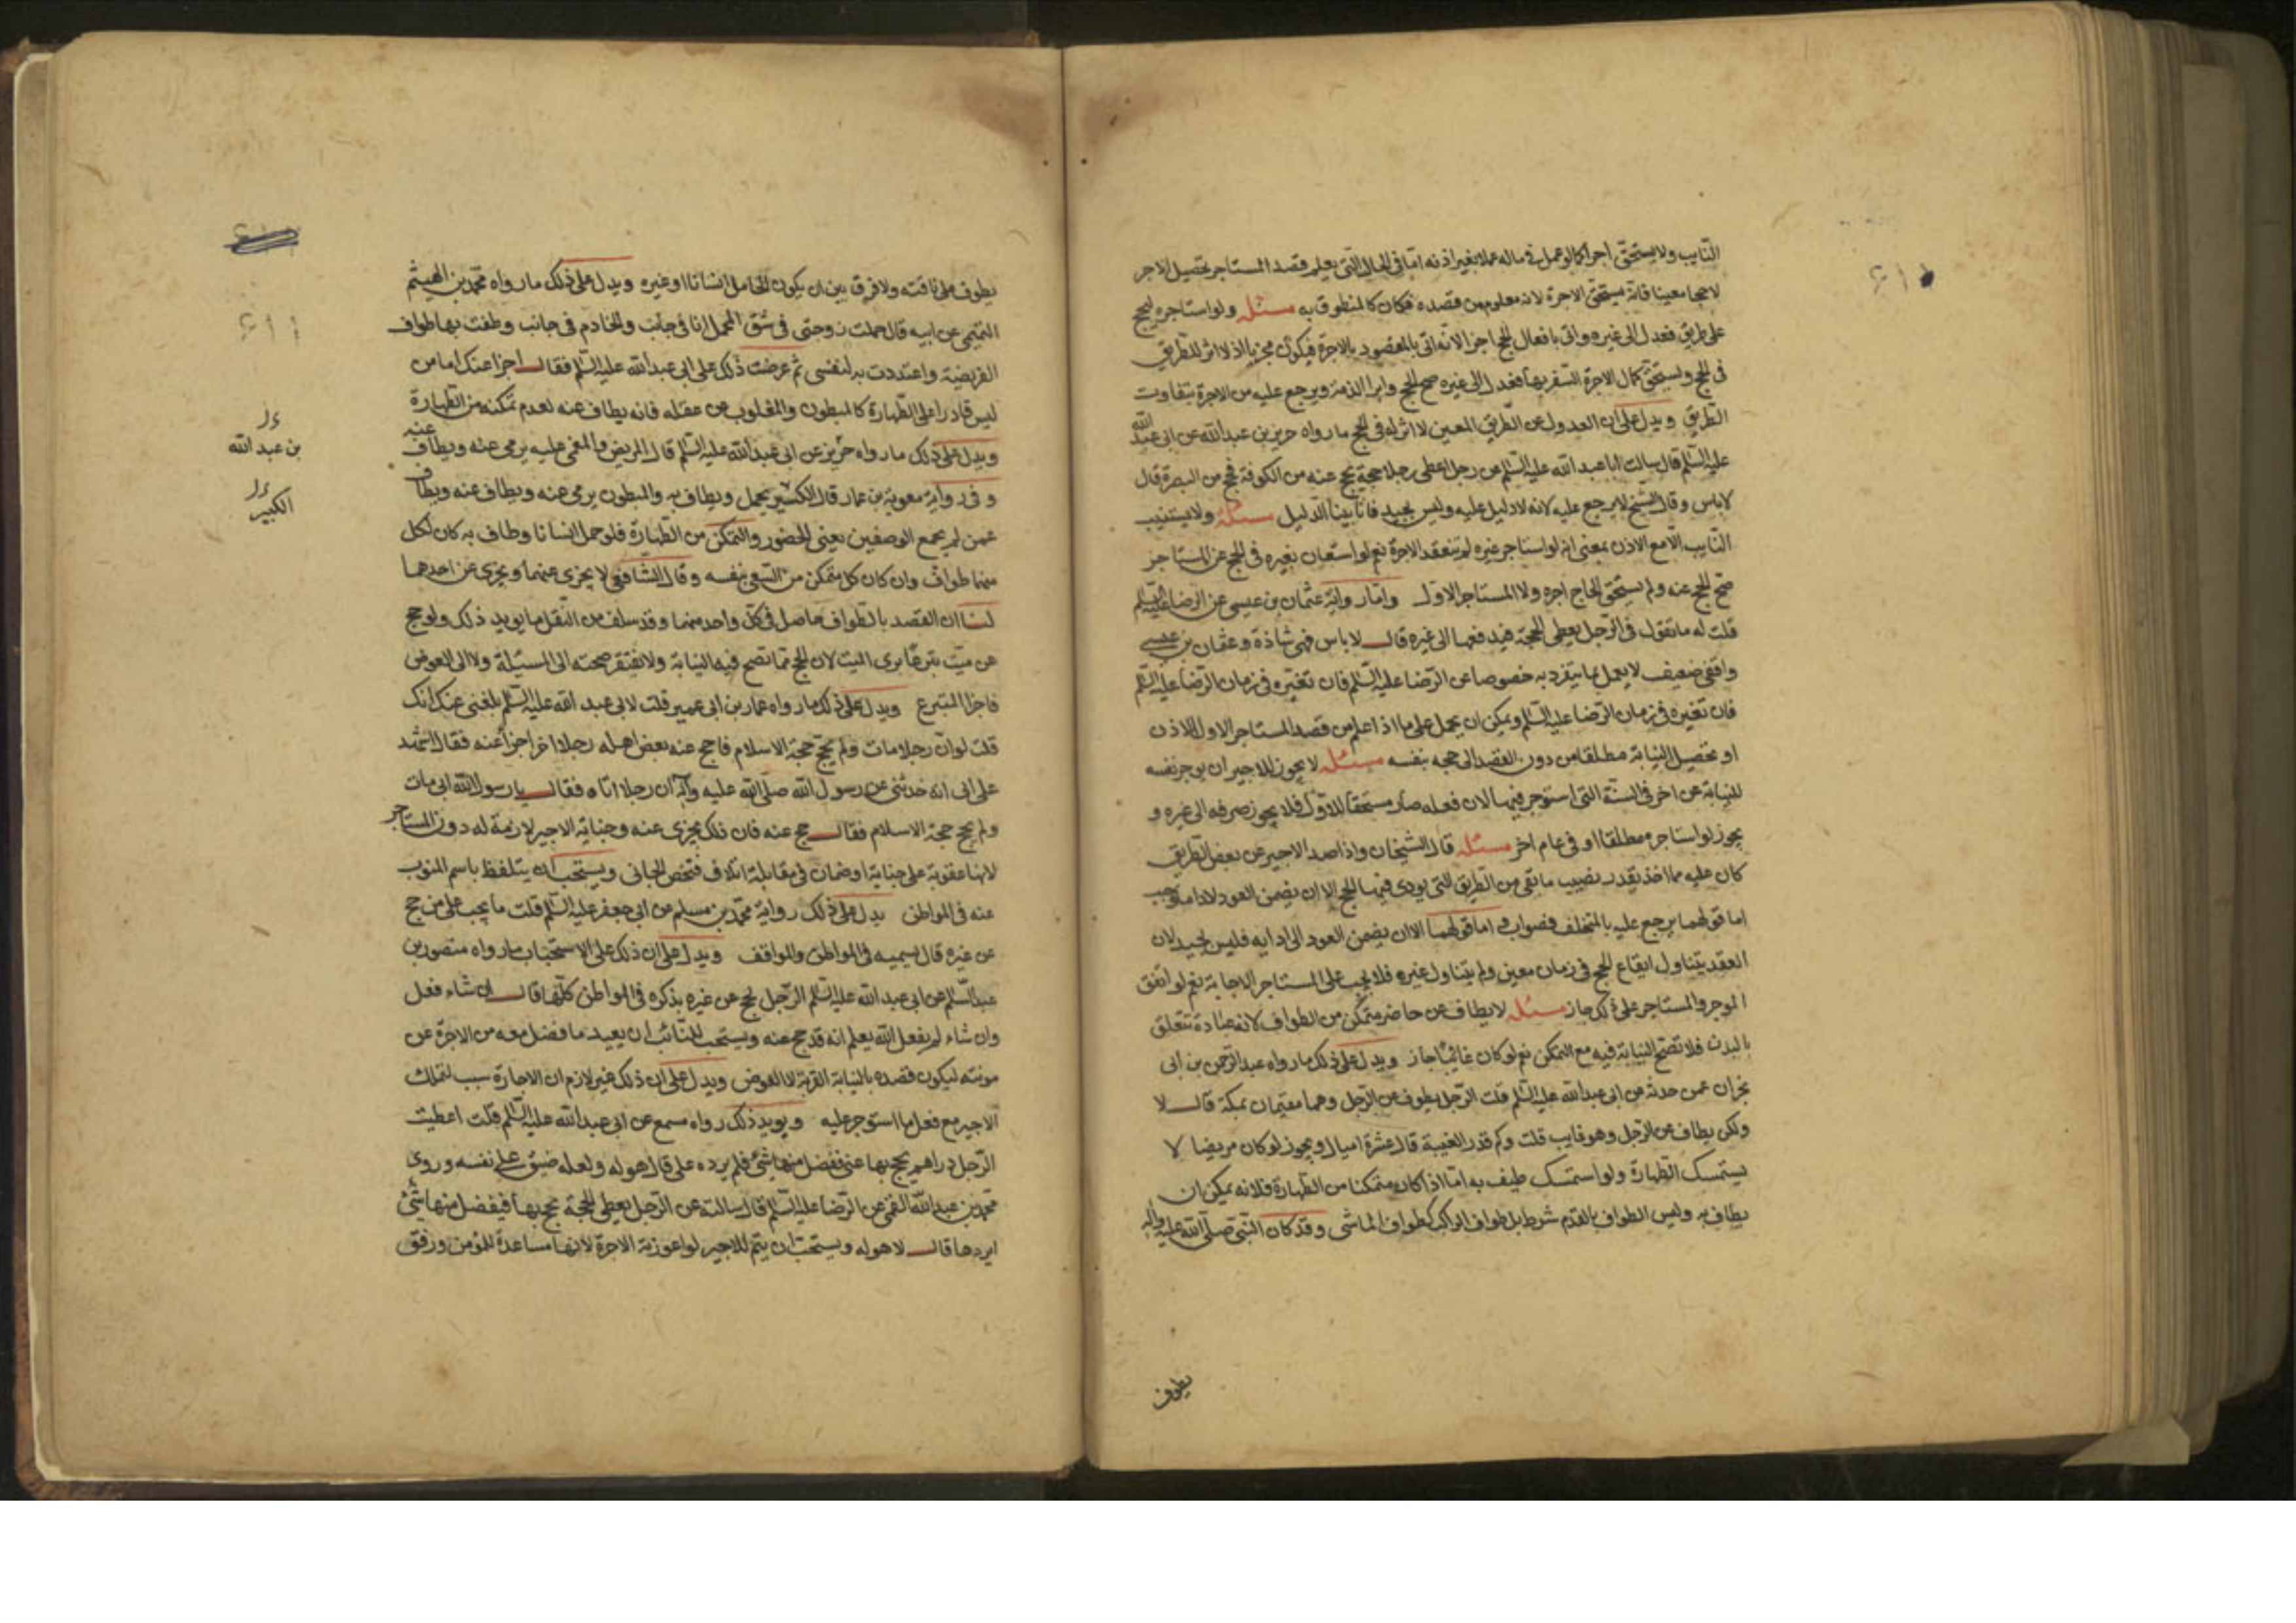 النايب ولا يستحق اجرا كما لو عمل في ماله عملا بغير اذنه اما في الحال التى يعلم قصد المستاجر تحصيل الاجر
لا حجا معينا فانه يستحق الاجرة لانه معلوم من قصده فكان كالمنطوق به مسئله ولو استاجره ليحج
على طريق فعدل الى غيره واتى بافعال الحج اجزا لانه اتى بالمقصود بالاجرة فيكون مجزيا اذ لا اثر للطريق
في الحج ويستحق كمال الاجرة السفر بها فعدل الى غيره صح الحج وابرا الذمة ويرجع عليه من الاجرة بتفاوت
الطريق ويدل على ان العدول عن الطريق المعين لا اثر له في الحج ما رواه حريز بن عبد الله عن ابى عبد الله
عليه السلم قال سالت ابا عبد الله عليه السلم عن رجل اعطى رجلا حجة يحج عنه من الكوفة فحج من البصرة قال
لا باس وقال الشيخ لا يرجع عليه لانه لا دليل عليه وليس بجيد فانا بينا الدليل مسئله ولا يستنيب
النايب الا مع الاذن بمعنى انه لو استاجر غيره لم تنعقد الاجرة نعم لو استعان بغيره في الحج عن المستاجر
صح الحج عنه ولم يستحق الحاج اجره ولا المستاجر الاول واما رواية عثمان بن عيسى عن الرضا عليه السلم
قلت له ما تقول في الرجل يعطى الحجة فيدفعها الى غيره قال لا باس فهى شاذة وعثمان بن عيسى
واقفى ضعيف لا يعمل بما يتفرد به خصوصا عن الرضا عليه السلم فان تغيره في زمان الرضا عليه السلم
فان تغيره في زمان الرضا عليه السلم ويمكن ان يحمل على ما اذا علم من قصد المستاجر الاول الاذن
او تحصيل النيابة مطلقا من دون القصد الى حجه بنفسه مسئله لا يجوز للاجير ان يوجر نفسه
للنيابة عن اخر في السنة التى استوجر فيها لان فعله صار مستحقا للاول فلا يجوز صرفه الى غيره و
يجوز لو استاجره مطلقا او في عام اخر مسئله قال الشيخان واذا صد الاجير عن بعض الطريق
كان عليه مما اخذ بقدر نصيب ما بقى من الطريق التى يودى فيها الحج الا ان يضمن العود لاداء ما وجب
اما قولهما يرجع عليه بالمتخلف فصواب واما قولهما الا ان يضمن العود الى ادايه فليس بجيد لان
العقد يتناول ايقاع الحج في زمان معين ولم يتناول غيره فلا يجب على المستاجر الاجابة نعم لو اتفق
الموجر والمستاجر على ذلك جاز مسئله لا يطاف عن حاضر متمكن من الطواف لانه عبادة تتعلق
بالبدن فلا تصح النيابة فيه مع التمكن نعم لو كان غائبا جاز ويدل على ذلك ما رواه عبد الرحمن بن ابى
نجران عمن حدثه عن ابى عبد الله عليه السلم قلت الرجل يطوف عن الرجل وهما مقيمان بمكة قال لا
ولكن يطاف عن الرجل وهو غايب قلت وكم قدر الغيبة قال عشرة اميال ويجوز لو كان مريضا لا
يستمسك الطهارة ولو استمسك طيف به اما اذا كان متمكنا من الطهارة فلانه يمكن ان
يطاف به وليس الطواف بالقدم شرط بل طواف الراكب كطواف الماشى وقد كان النبى صلى الله عليه واله
يطوف
يطوف على ناقته ولا فرق بين ان يكون الحامل انسانا او غيره ويدل على ذلك ما رواه محمد بن الهيثم
التميمى عن ابيه قال حملت زوجتى في شق المحمل انا في جانب والخادم في جانب وطفت بها طواف
الفريضة واعتددت به لنفسى ثم عرضت ذلك على ابى عبد الله عليه السلم فقال اجزا عنك اما من
ليس قادرا على الطهارة كالمبطون والمغلوب على عقله فانه يطاف عنه لعدم تمكنه من الطهارة
ويدل على ذلك ما رواه حريز عن ابى عبد الله عليه السلم قال المريض والمغمى عليه يرمى عنه ويطاف عنه
وفى رواية معوية بن عمار قال الكسير يحمل ويطاف به والمبطون يرمى عنه ويطاف عنه ويطاف
عمن لم يجمع الوصفين يعنى الحضور والتمكن من الطهارة فلو حمل انسانا وطاف به كان لكل
منهما طواف وان كان كل متمكن من السعى بنفسه وقال الشافعى لا يجزى عنهما ويجزى عن احدهما
لنا ان القصد بالطواف حاصل في كل واحد منهما وقد سلف من النقل ما يويد ذلك ولو حج
عن ميت تبرعا برى الميت لان الحج مما تصح فيه النيابة ولا تفتقر صحته الى المسئلة ولا الى العوض
فاجزا المتبرع ويدل على ذلك ما رواه عمار بن ابى عمير قلت لابى عبد الله عليه السلم بلغنى عنك انك
قلت لو ان رجلا مات ولم يحج حجة الاسلام فاحج عنه بعض اهله رجلا اخر اجزأ عنه فقال اشهد
على ابى انه حدثنى عن رسول الله صلى الله عليه وآله ان رجلا اتاه فقال يا رسول الله ابى مات
ولم يحج حجة الاسلام فقال حج عنه فان ذلك يجزى عنه وجناية الاجير لازمة له دون المستاجر
لانها عقوبة على جناية او ضمان في مقابلة اتلاف فتخص الجانى ويستحب ان يتلفظ باسم المنوب
عنه في المواطن يدل على ذلك رواية محمد بن مسلم عن ابى جعفر عليه السلم قلت ما يجب على من حج
عن غيره قال يسميه في المواطن والمواقف ويدل على ان ذلك على الاستحباب ما رواه منصور بن
عبد السلم عن ابى عبد الله عليه السلم الرجل يحج عن غيره يذكره في المواطن كلها قال ان شاء فعل
وان شاء لم يفعل الله يعلم انه قد حج عنه ويستحب للنائب ان يعيد ما فضل معه من الاجرة عن
مونته ليكون قصده بالنيابة القربة لا العوض ويدل على ان ذلك غير لازم ان الاجارة سبب لتملك
الاجير مع فعل ما استوجر عليه ويويد ذلك رواه مسمع عن ابى عبد الله عليه السلم قلت اعطيت
الرجل دراهم يحج بها عنى ففضل منها شئ فلم يرده على قال هو له ولعله ضيق على نفسه وروى
محمد بن عبد الله القمى عن الرضا عليه السلم قال سالته عن الرجل يعطى الحجة يحج بها فيفضل منها شئ
ايردها قال لا هو له ويستحب ان يتم للاجير لو اعوزته الاجرة لانها مساعدة للمؤمن ورفق
بن عبد الله
الكبير
٤١١